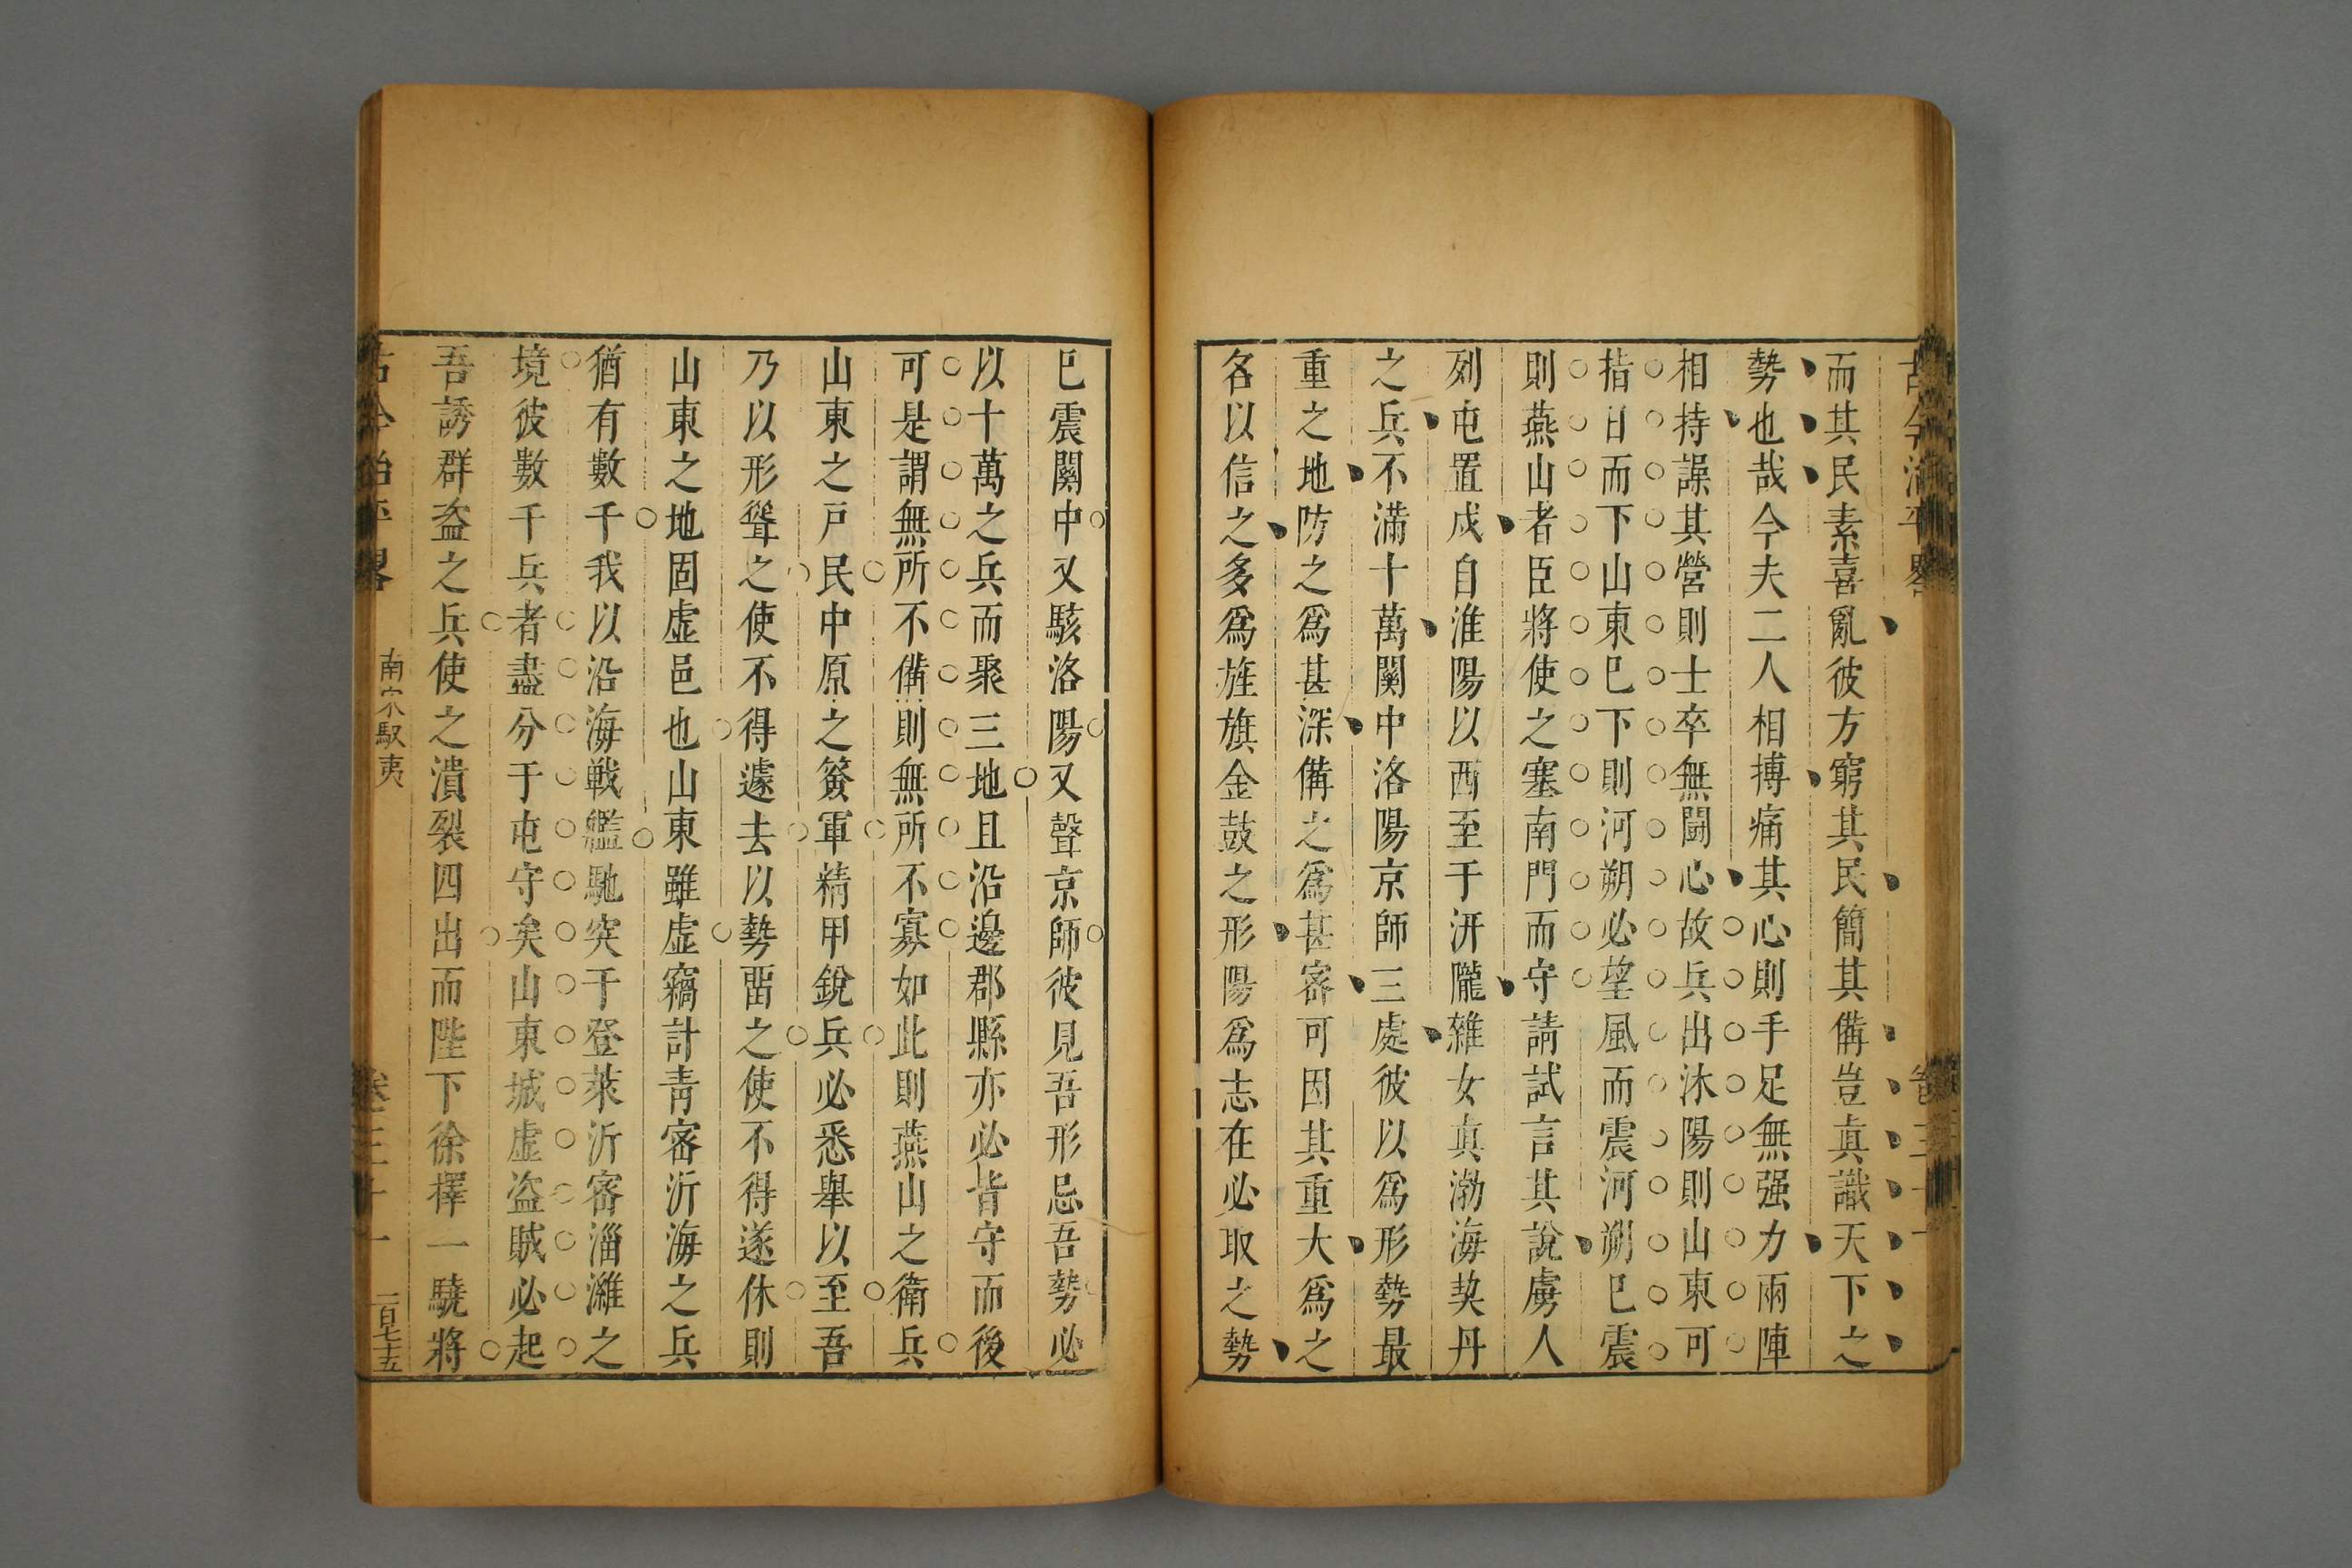 而其民素喜亂彼方窮其民簡其備豈真識天下之
勢也哉今夫二人相搏痛其心則手足無强力兩陣
相持譟其營則士卒無鬭心故兵出沐陽則山東可
指日而下山東巳下則河朔必望風而震河朔巳震
則燕山者臣將使之塞南門而守請試言其說虜人
列屯置戍自淮陽以西至于汧隴雜女真渤海契丹
之兵不滿十萬關中洛陽京師三處彼以爲形勢最
重之地防之爲甚深備之爲甚密可因其重大爲之
各以信之多爲旌旗金鼓之形陽爲志在必取之勢
巳震關中又駭洛陽又聲京師彼見吾形忌吾勢必
以十萬之兵而聚三地且沿邊郡縣亦必皆守而後
可是謂無所不備則無所不寡如此則燕山之衛兵
山東之戸民中原之簽軍精甲銳兵必悉舉以至吾
乃以形聳之使不得遽去以勢畱之使不得遂休則
山東之地固虛邑也山東雖虛竊計青密沂海之兵
猶有數千我以沿海戰艦馳突于登萊沂密淄濰之
境彼數千兵者盡分于屯守矣山東城虛盜賊必起
吾誘群盜之兵使之潰裂四出而陛下徐擇一驍將
古今治平畧
南宋馭夷
卷三十一
一百七十五